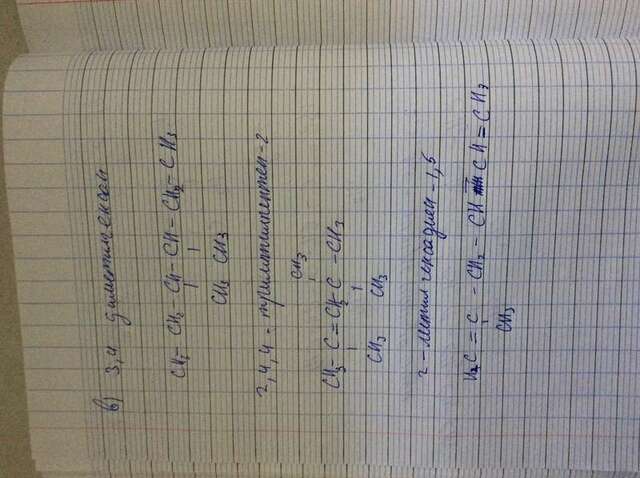 в) 3,4 диметилгексан
CH3 - CH2 - CH - CH - CH2 - CH3
CH3 CH3
2,4,4 - триметилпентен-2
CH3
CH3 - C = CH - C - CH3
CH3 CH3
2-метил гексадиен-1,5
H2C = C - CH2 - CH = CH = CH3
CH3